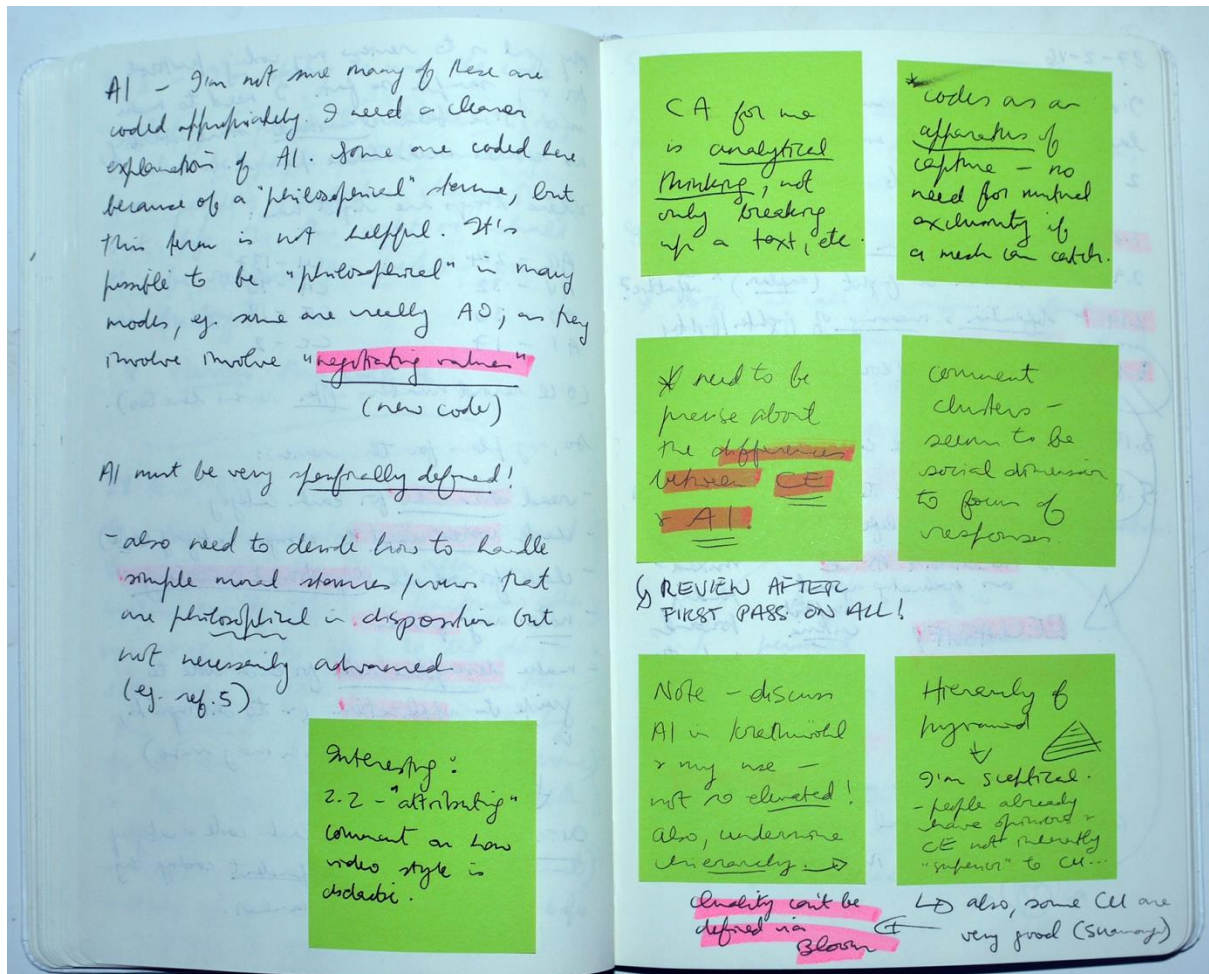 AI – I'm not sure many of these are
coded appropriately. I need a clearer
explanation of AI. Some are coded here
because of a "philosophical" stance, but
this term is not helpful. It's
possible to be "philosophical" in many
modes, eg. some are really AO; as they
involve involve "negotiating values"
(new code)
AI must be very specifically defined!
- also need to decide how to handle
simple moral stances/views that
are philosophical in disposition but
not necessarily advanced
(eg. ref. 5)
Interesting:
2.2 - "attributing"
comment on how
video style is
didactic.
CA for me
is analytical
thinking, not
only breaking
up a text, etc.
* codes as an
apparatus of
capture – no
need for mutual
exclusivity if
a mesh can catch.
* need to be
precise about
the differences
between CE
& AI.
REVIEW AFTER
FIRST PASS ON ALL!
comment
clusters –
seems to be
social dimension
to focus of
responses.
Note – discuss
AI in Krathwohl
& my use –
not so elevated!
also, undermine
hierarchy. →
Hierarchy of
pyramid
↓
I'm sceptical.
- people already
have opinions &
CE not inherently
"superior" to CU...
↳ also, some CU are
very good
Quality can't be
defined via
Bloom